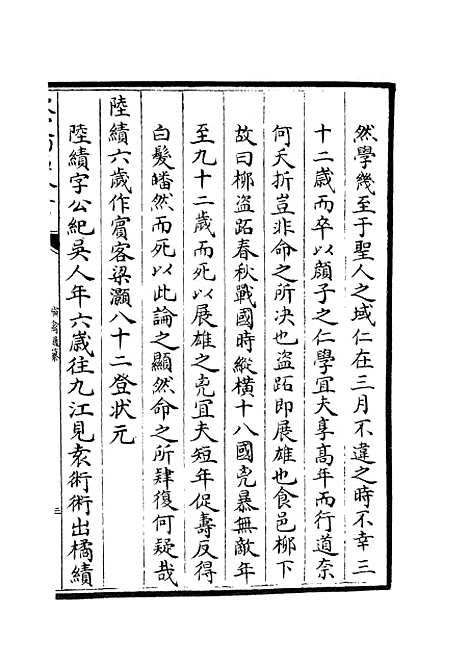 然學幾至于聖人之域仁在三月不違之時不幸三
十二歲而卒以顔子之仁學宜夫享髙年而行道奈
何夭折豈非命之所决也盜跖即展雄也食邑柳下
故曰柳盜跖春秋戰國時縱橫十八國兇暴無敵年
至九十二歲而死以展雄之兇宜夫短年促壽反得
白髮皤然而死以此論之顯然命之所肆復何疑哉
陸績六歲作賔客梁灝八十二登狀元
陸績字公紀吳人年六歲往九江見袁術術出橘績
三